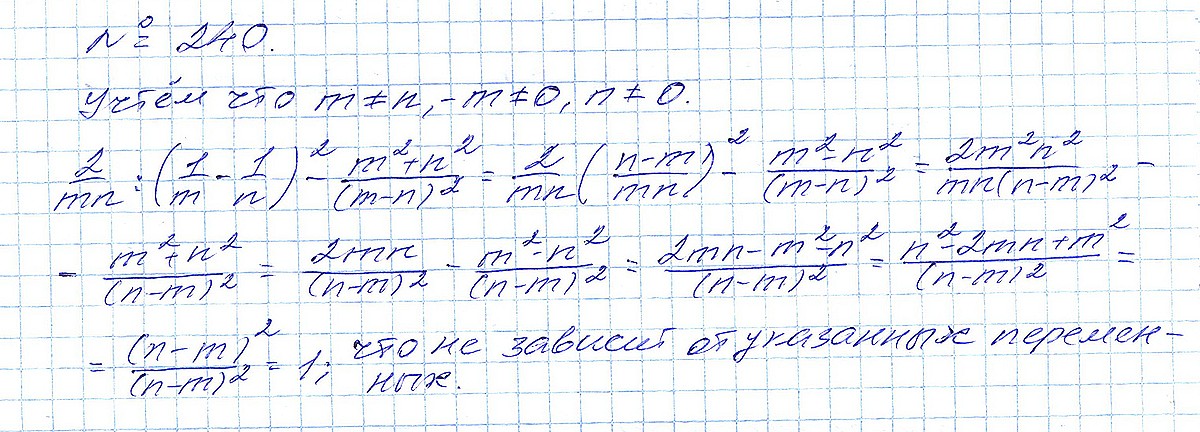 № 240.
Учтём что m ≠ n, -m ≠ 0, n ≠ 0.
2/mn : (1/m - 1/n)² - (m²+n²)/(m-n)² = 2/mn ((n-m)/mn)² - (m²-n²)/(m-n)² = 2m²n²/mn(n-m)² -
- (m²+n²)/(n-m)² = 2mn/(n-m)² - (m²-n²)/(n-m)² = (2mn-m²-n²)/(n-m)² = (n²-2mn+m²)/(n-m)² =
= (n-m)²/(n-m)² = 1; что не зависит от указанных перемен-
ных.